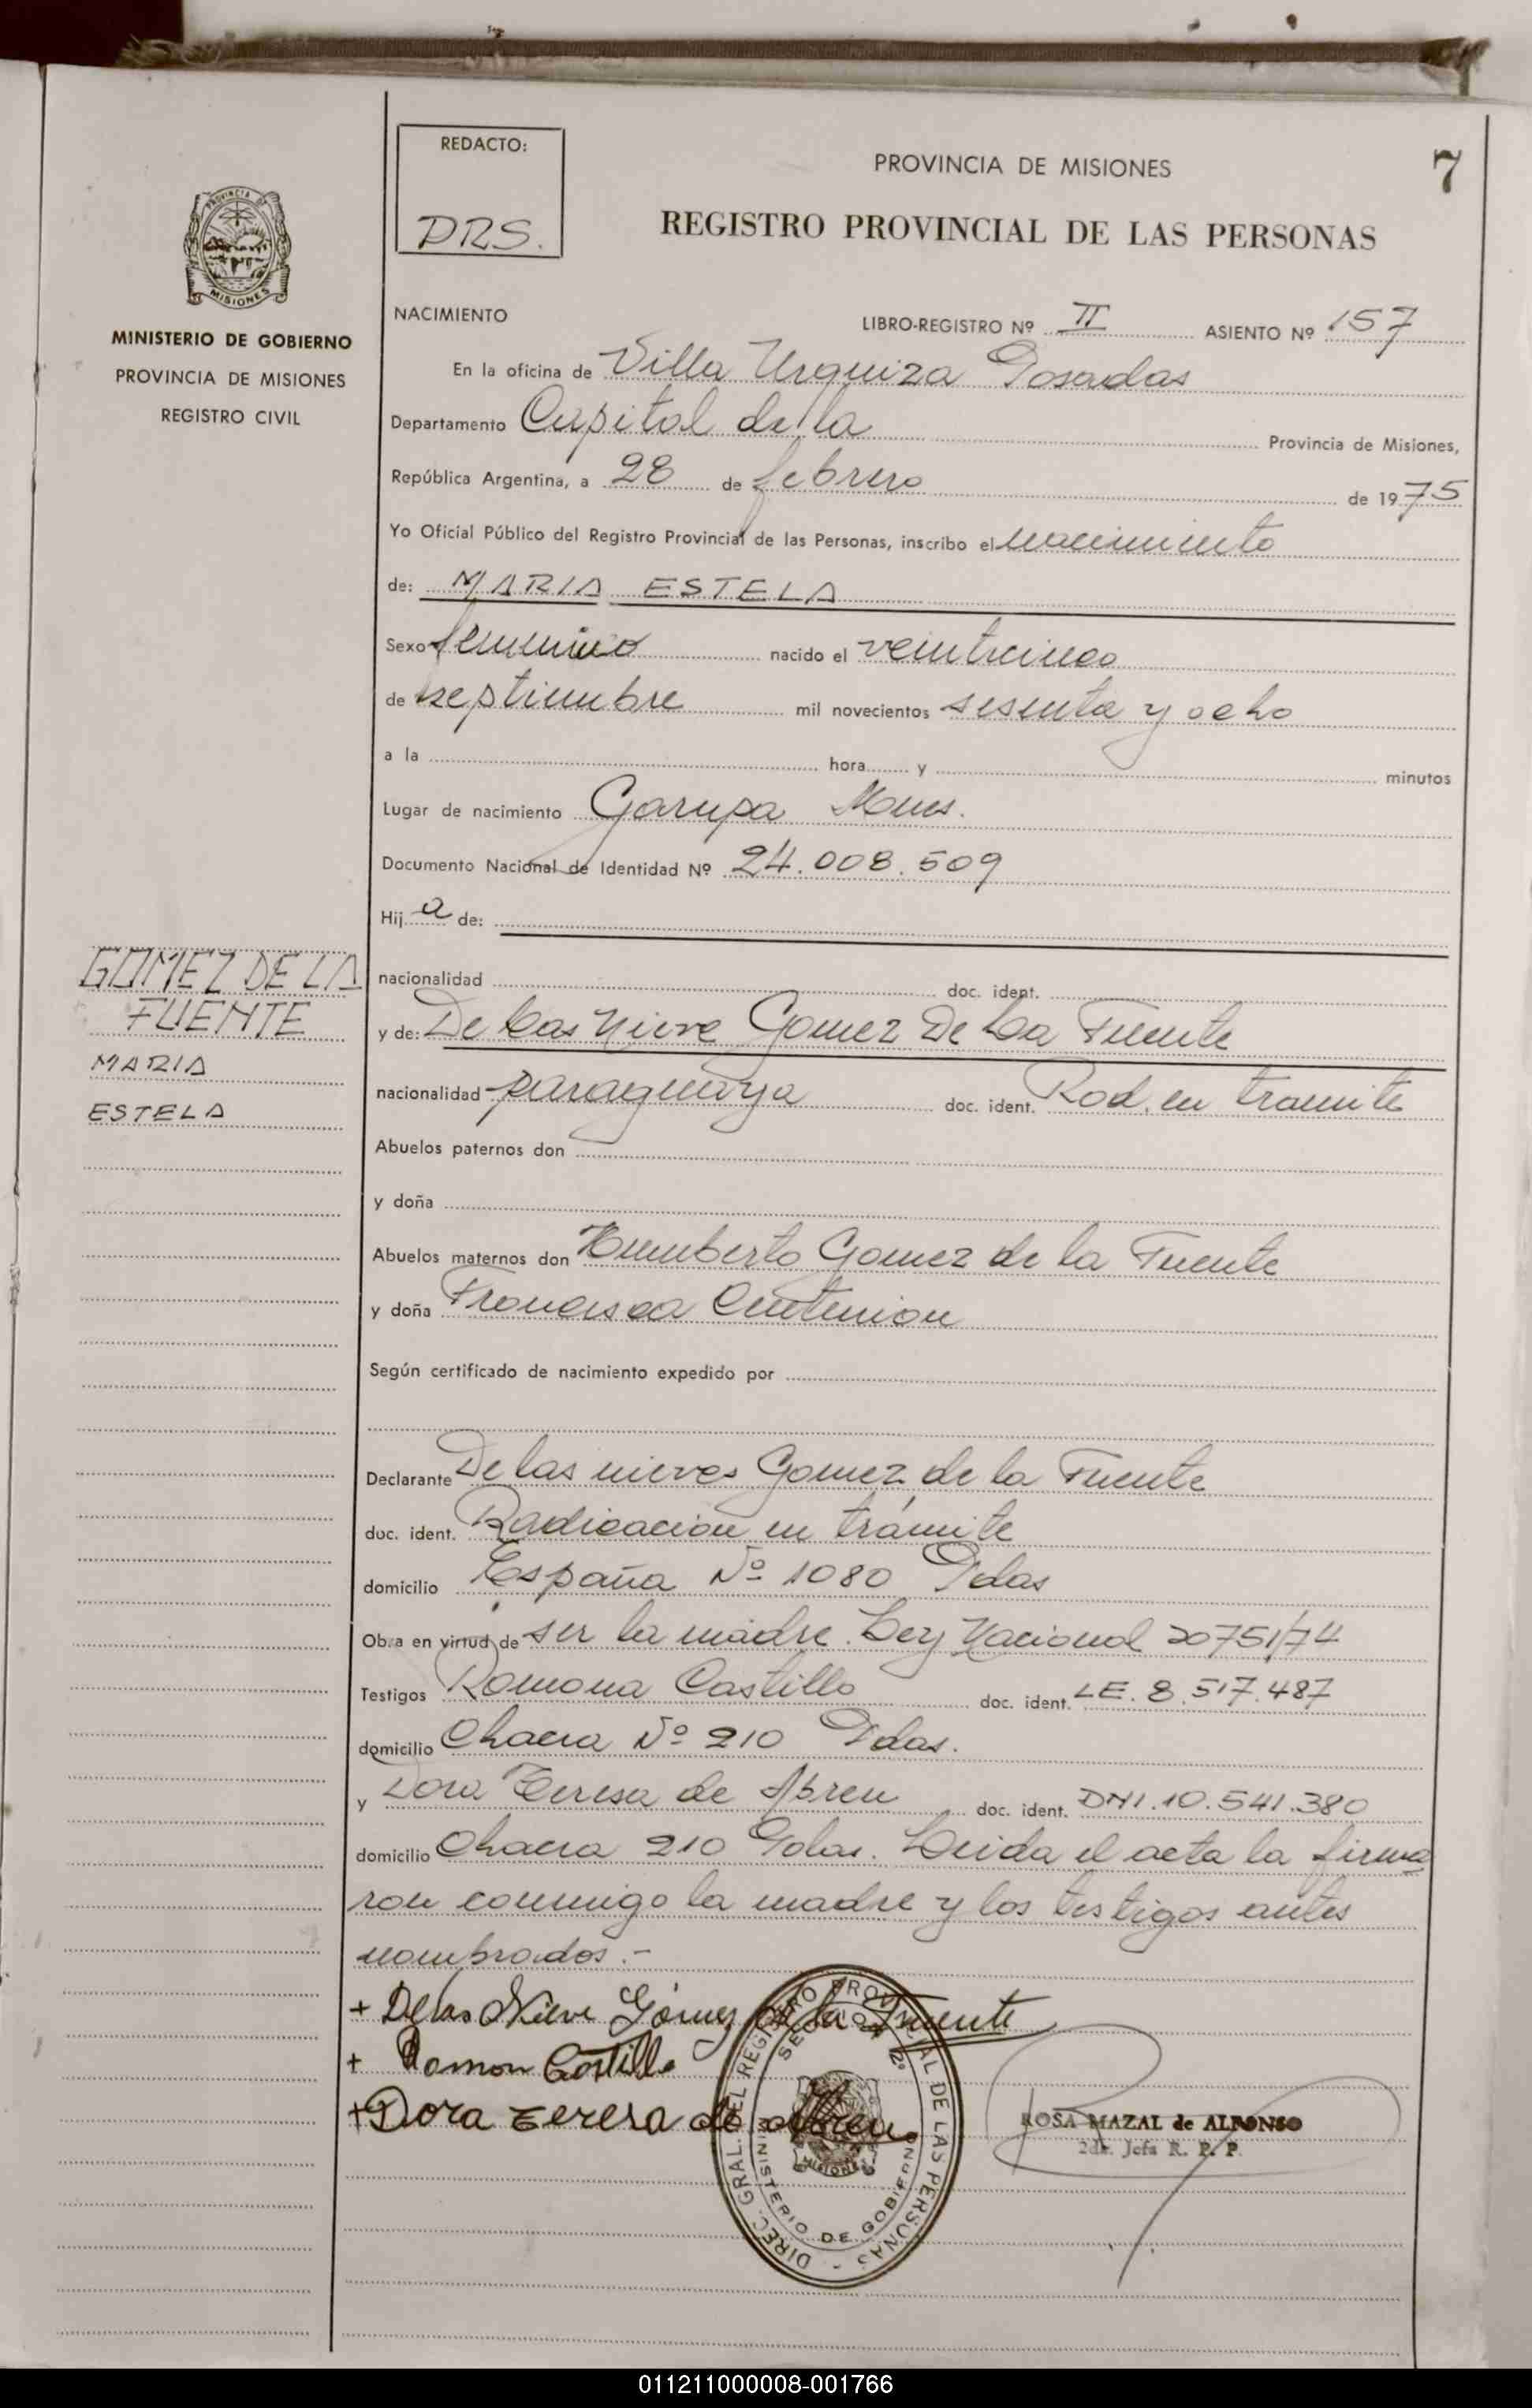 REDACTO:
DRS.
PROVINCIA DE MISIONES
7
REGISTRO PROVINCIAL DE LAS PERSONAS
MINISTERIO DE GOBIERNO
PROVINCIA DE MISIONES
REGISTRO CIVIL
NACIMIENTO
LIBRO-REGISTRO Nº II ASIENTO Nº 157
En la oficina de Villa Urquiza Posadas
Departamento Capital de la Provincia de Misiones,
República Argentina, a 28 de febrero de 1975
Yo Oficial Público del Registro Provincial de las Personas, inscribo el nacimiento
de: MARIA ESTELA
Sexo femenino nacido el veinticinco
de septiembre mil novecientos sesenta y ocho
a la hora y minutos
Lugar de nacimiento Garupa Mnes.
Documento Nacional de Identidad Nº 24.008.509
Hij a de:
GOMEZ DE LA
FUENTE
MARIA
ESTELA
nacionalidad doc. ident.
y de: De las Nieve Gomez De La Fuente
nacionalidad paraguaya doc. ident. Rod. en tramite
Abuelos paternos don
y doña
Abuelos maternos don Humberto Gomez de la Fuente
y doña Francisca Centurion
Según certificado de nacimiento expedido por
Declarante De las nieves Gomez de la Fuente
doc. ident. Radicacion en trámite
domicilio España Nº 1080 Pdas
Obra en virtud de ser la madre. Ley Nacional 20751/74
Testigos Ramona Castillo doc. ident. LE. 8.517.487
domicilio Chacra Nº 210 Pdas.
y Dora Teresa de Abreu doc. ident. DNI.10.541.380
domicilio Chacra 210 Pdas. Leida el acta la firma
ron conmigo la madre y los testigos antes
nombrados.-
+ Delas Nieve Gómez de la Fuente
+ Ramon Castillo
+ Dora Teresa de Abreu
DIREC. GRAL. DEL REGISTRO PROVINCIAL DE LAS PERSONAS -
MINISTERIO DE GOBIERNO
MISIONES
ROSA MAZAL de ALFONSO
2da. Jefa R. P. P.
011211000008-001766